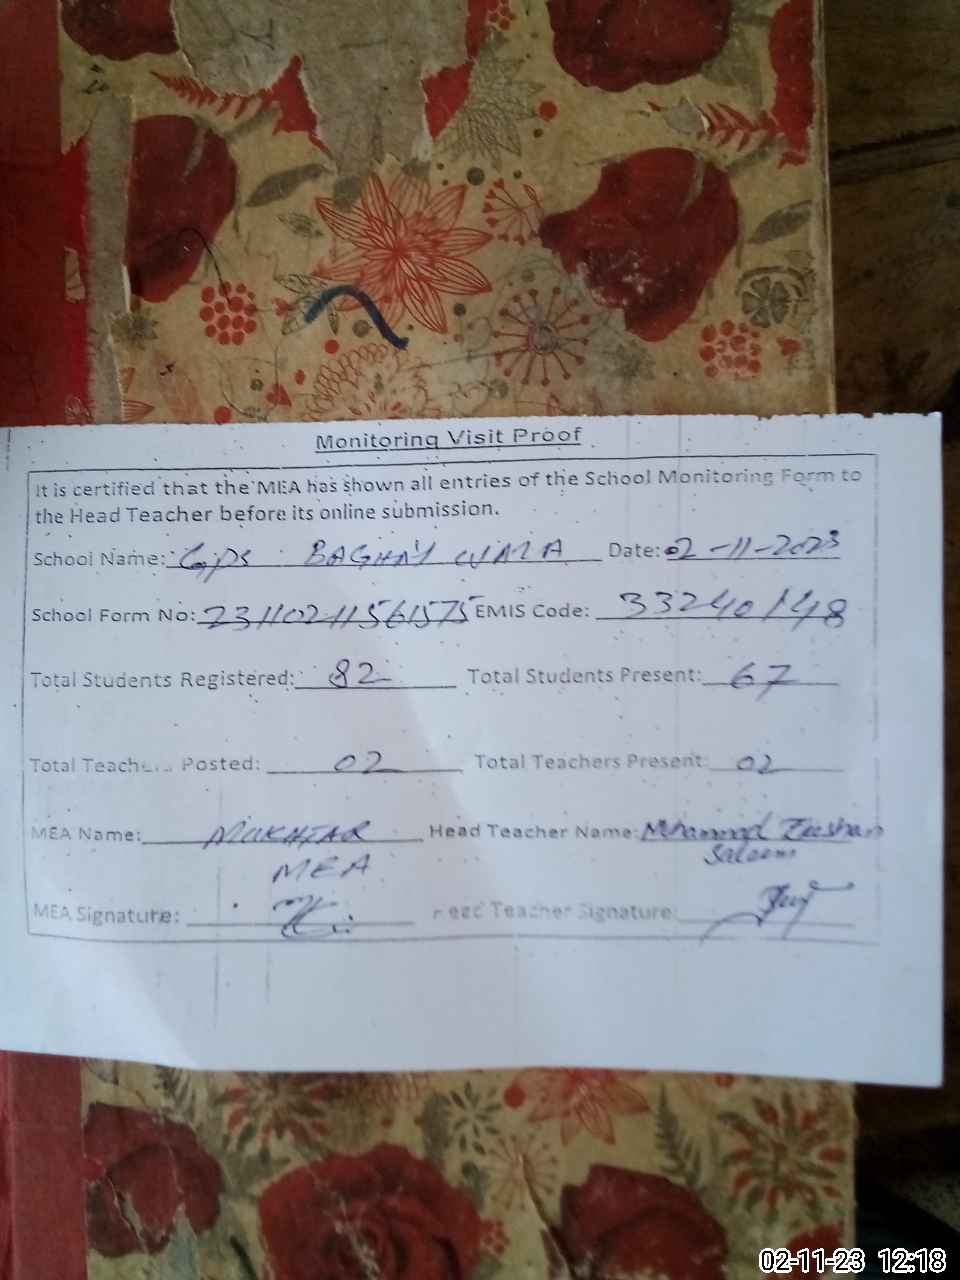 Monitoring Visit Proof
It is certified that the MEA has shown all entries of the School Monitoring Form to
the Head Teacher before its online submission.
School Name: Gps BAGHAY WALA Date: 02-11-2023
School Form No: 23110211561575 EMIS Code: 33240148
Total Students Registered: 82 Total Students Present: 67
Total Teachers Posted: 02 Total Teachers Present: 02
MEA Name: MUKHTAR Head Teacher Name: Mhammad Zeeshan
MEA Saleem
MEA Signature: Head Teacher Signature:
02-11-23 12:18